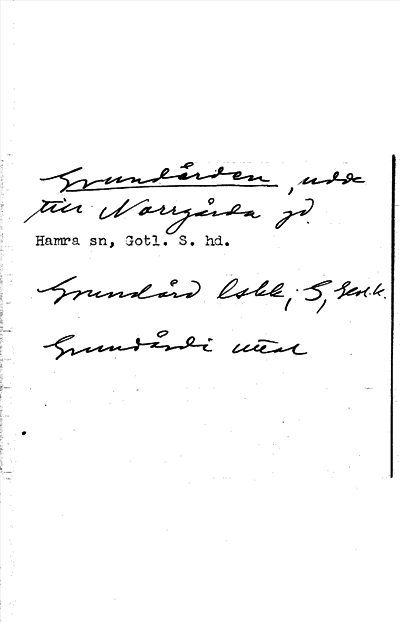 Grundården, udde
till Norrgårda gd.
Hamra sn, Gotl. S. hd.
Grundård lskk; S, Gen.k.
Grundårdi uttal